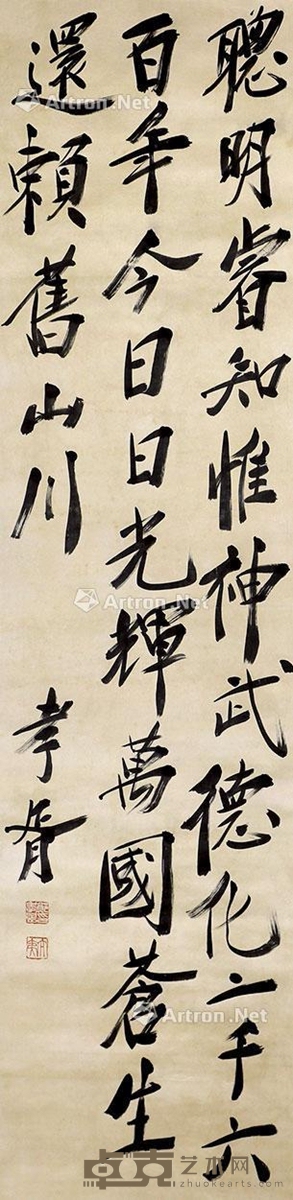 聰明睿知惟神武德化二千六
百年今日日光輝萬國蒼生
還賴舊山川
孝胥
Artron.Net
Artron.Net
Artron.Net
Artron.Net
卓克艺术网
www.zhuokearts.com